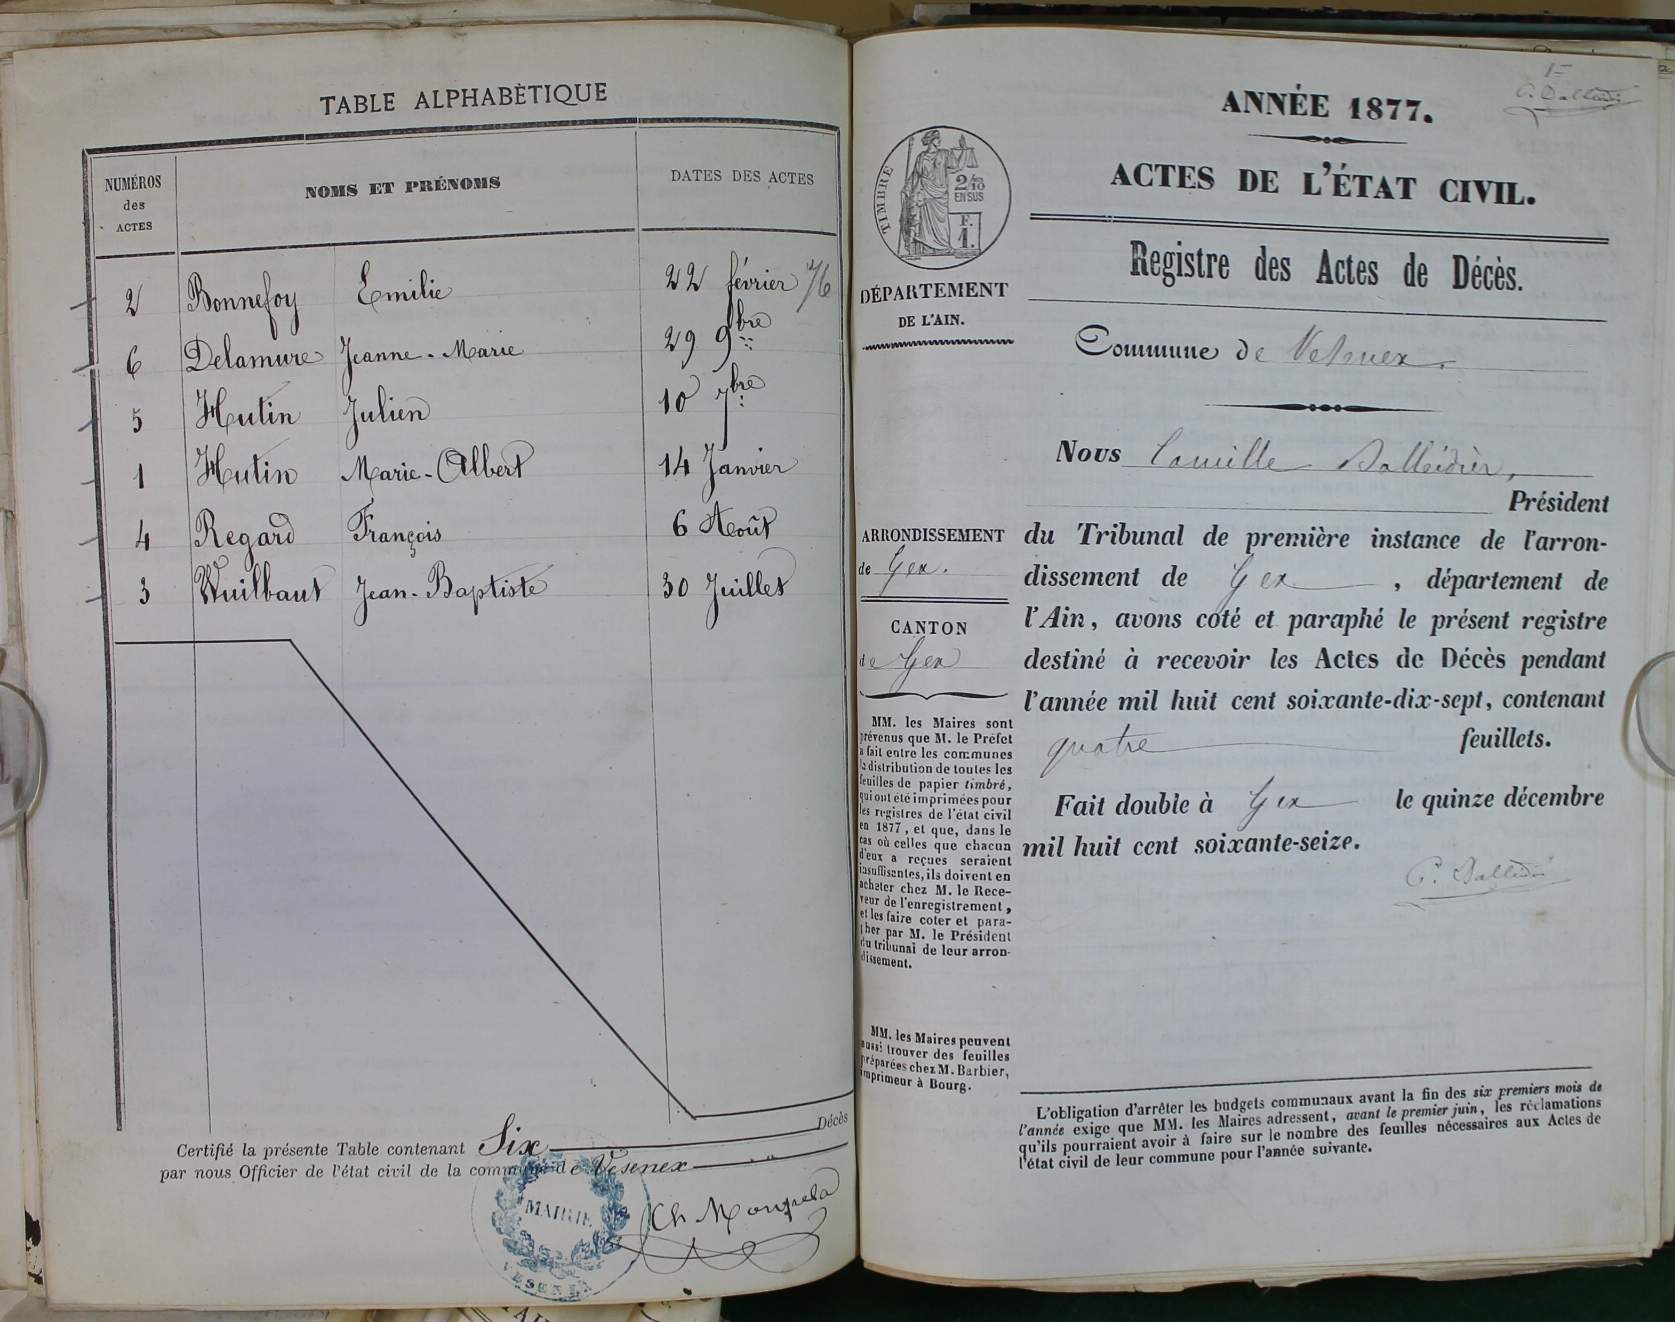 TABLE ALPHABÈTIQUE
NUMÉROS des ACTES
NOMS ET PRÉNOMS
DATES DES ACTES
2 Bonnefoy Emilie 22 février 76
6 Delamure Jeanne-Marie 29 9bre
5 Hutin Julien 10 7bre
1 Hutin Marie-Albert 14 Janvier
4 Regard François 6 Août
3 Wuilbaut Jean-Baptiste 30 Juillet
Certifié la présente Table contenant Six Décès
par nous Officier de l'état civil de la commune de Vesenex
MAIRIE
VESENEX
1
ANNÉE 1877.
ACTES DE L'ÉTAT CIVIL.
TIMBRE
2/10
EN SUS
F.
1.
Registre des Actes de Décès.
DÉPARTEMENT
DE L'AIN.
Commune de Vesenex.
Nous Camille
Président
ARRONDISSEMENT
de Gex.
CANTON
de Gex
MM. les Maires sont
prévenus que M. le Préfet
a fait entre les communes
la distribution de toutes les
feuilles de papier timbré,
qui ont été imprimées pour
les registres de l'état civil
en 1877, et que, dans le
cas où celles que chacun
d'eux a reçues seraient
insuffisantes, ils doivent en
acheter chez M. le Rece-
veur de l'enregistrement,
et les faire coter et para-
pher par M. le Président
du tribunal de leur arron-
dissement.
MM. les Maires peuvent
aussi trouver des feuilles
préparées chez M. Barbier,
imprimeur à Bourg.
du Tribunal de première instance de l'arron-
dissement de Gex, département de
l'Ain, avons coté et paraphé le présent registre
destiné à recevoir les Actes de Décès pendant
l'année mil huit cent soixante-dix-sept, contenant
quatre feuillets.
Fait double à Gex le quinze décembre
mil huit cent soixante-seize.
L'obligation d'arrêter les budgets communaux avant la fin des six premiers mois de
l'année exige que MM. les Maires adressent, avant le premier juin, les réclamations
qu'ils pourraient avoir à faire sur le nombre des feuilles nécessaires aux Actes de
l'état civil de leur commune pour l'année suivante.